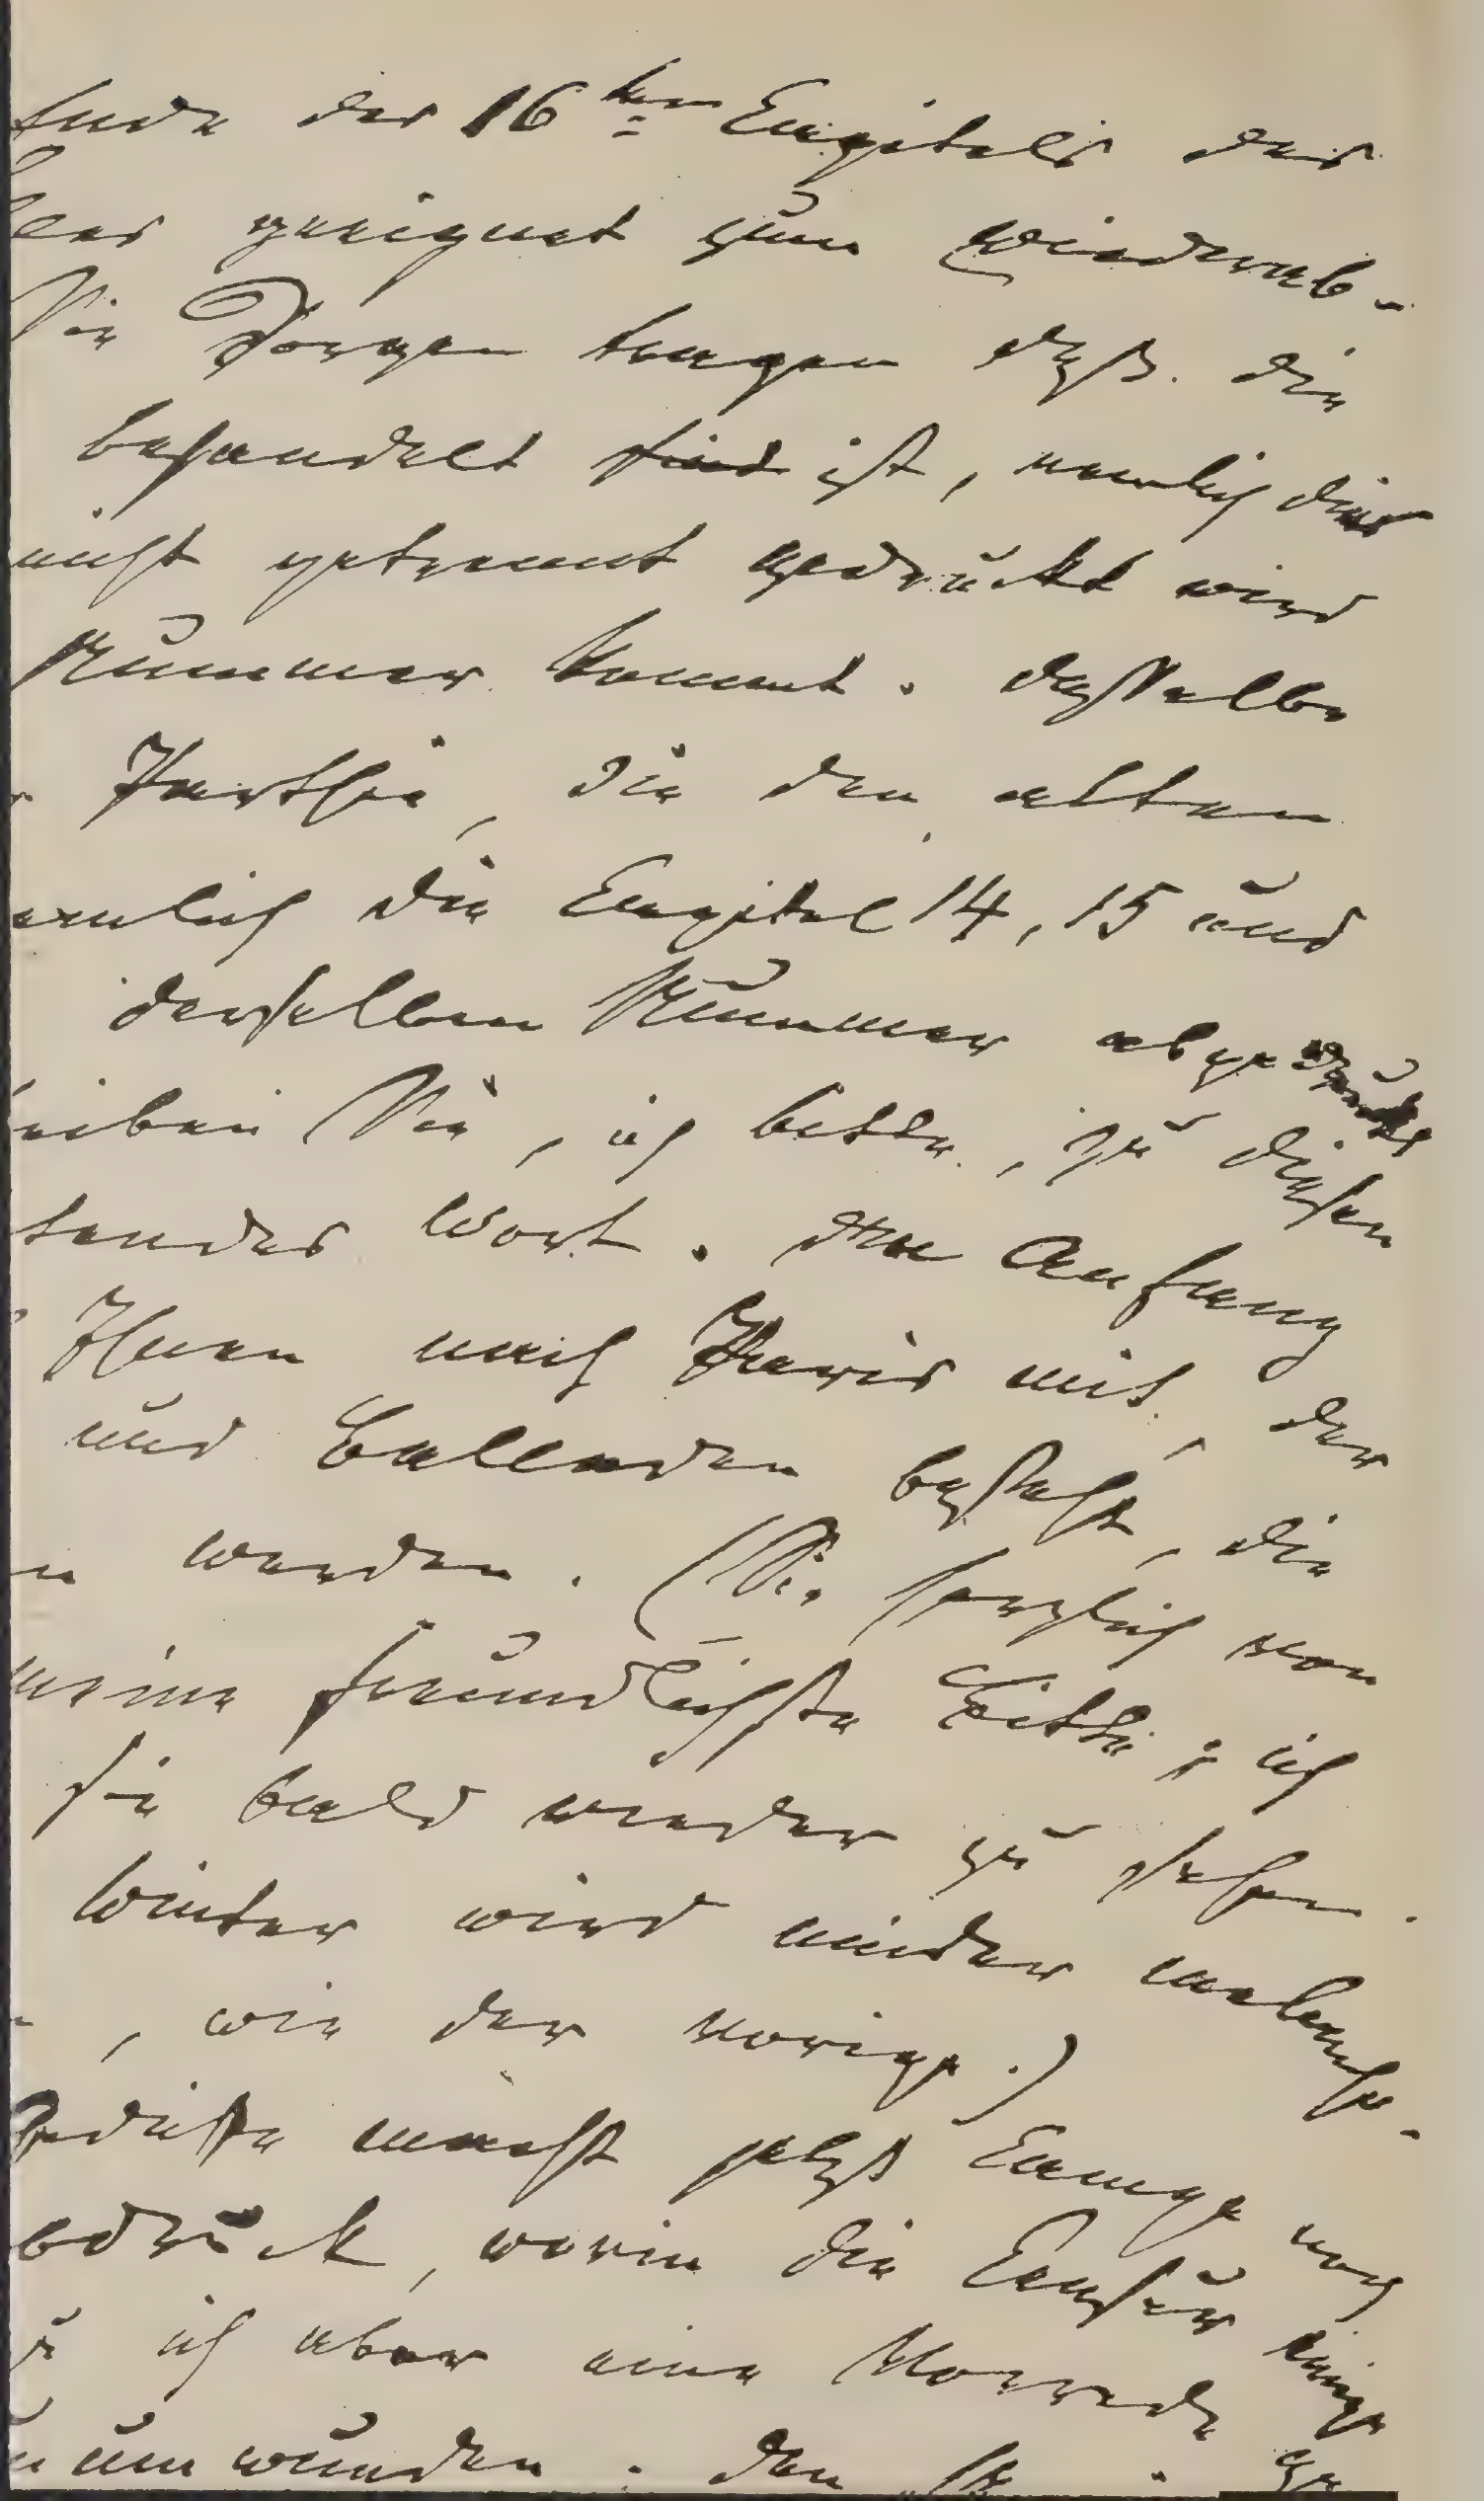 Ende des 16ten Capitels des
geeignet zum Wiederab-
Sie Sorgen tragen daß die
behandelt sind ist, nemlich das
nicht getrennt gedruckt wird
Nummer kommt. dasselbe
Parthie, die den alten
nemlich die Capitel 14, 15 und
derselben Nummer abgedruckt
Sie, ich bitte, zu diesen
Wort. Anfang
Ihnen nach Paris mit, der
und Balladen besteht, die
werden. (Sie herzlich von
meine freundlichste Bitte; ich
sie bald wieder zu sehen.
Winter wird minder melancho-
, wie der vorige.)
Gedichte macht jetzt Campe noch
Abdruck, worin die Censur einige
ich aber eine Vorrede ge
umwunden. den